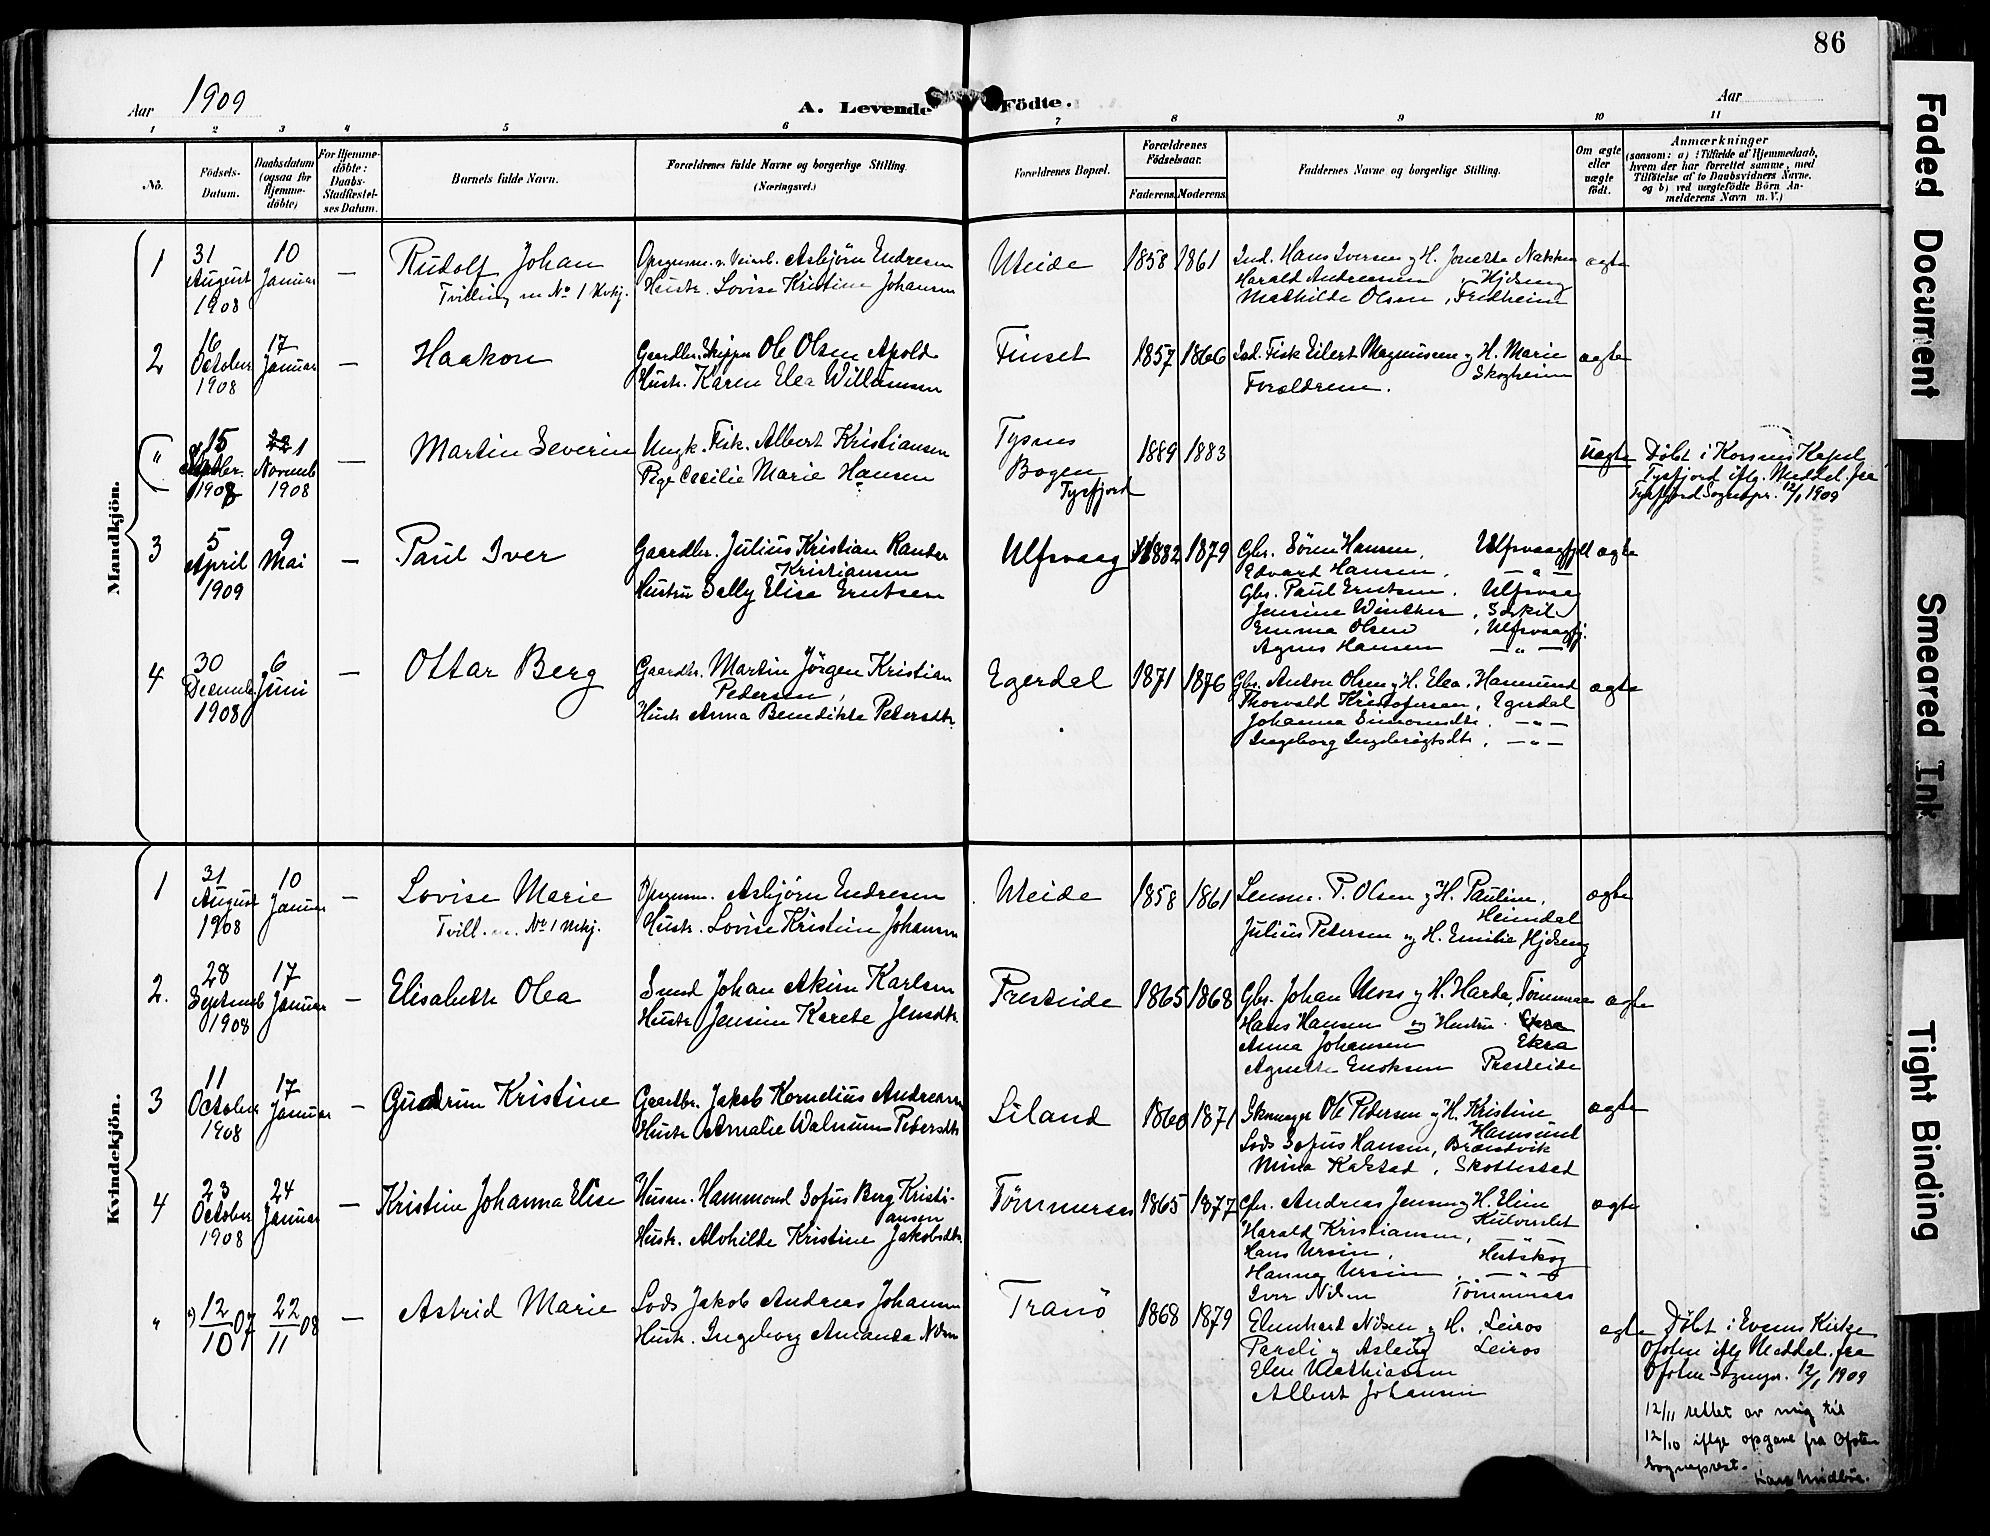 86
Aar 1909
A. Levende Födte.
Aar
1 2 3 4 5 6 7 8 9 10 11
No.
Födsels-Datum.
Daabsdatum (ogsaa for Hjemme-döbte)
For Hjemme-döbte: Daabs-Stadfæstel-ses Datum.
Barnets fulde Navn.
Forældrenes fulde Navne og borgerlige Stilling.
(Næringsvei.)
Forældrenes Bopæl.
Forældrenes Födselsaar.
Faderens. Moderens.
Faddernes Navne og borgerlige Stilling.
Om ægte eller uægte födt.
Anmærkninger
(saasom: a) i Tilfælde af Hjemmedaab,
hvem der har forrettet samme, med
Tilföielse af to Daabsvidners Navne,
og b) ved uægtefödte Börn An-
melderens Navn m. V.)
Mandkjön.
1
31 August 1908
10 Januar
—
Rudolf Johan
Tvilling m No 1 Kvkj.
Asbjörn Endresen
Hustr. Lovise Kristine Johansen
Uteide
1858 1861
Ind. Hans Iversen og H. Jonetta Nakken
Harald Andreassen Hjelseng
Mathilde Olsen, Fredheim
ægte
2
16 October 1908
17 Januar
—
Haakon
Gaardbr. Skipper Ole Olsen Apold
Hustr. Karen Elea Willumsen
Finset
1857 1866
Ind. Fisk Eilert Magnussen og H. Marie
Skogheim
Forældrene.
ægte
"
15
1908
1 Novemb 1908
—
Martin Severin
Ungk. Fisk. Albert Kristiansen
Pige Cecilie Marie Hansen
Tysnes
Bogen
Tysfjord
1889 1883
uægte
Döbt i Korsnes Kapel
Tysfjord iflg. Meddel. fra
Tysfjord Sognepr. 12/1 1909
3
5 April 1909
9 Mai
—
Paul Iver
Gaardbr. Julius Kristian Rander
Kristiansen
Hustru Selly Elise Erntsen
Ulfsvaag
1882 1879
Gbr. Sören Hansen, Ulfsvaagfjell
Edvard Hansen, — " —
Gbr. Paul Erntsen, Ulfsvaag
Jensine Winther,
Emma Olsen, Ulfsvaagfj.
Agnes Hansen — " —
ægte
4
30 Decemb. 1908
6 Juni
—
Ottar Berg
Gaardbr. Martin Jörgen Kristian
Pedersen,
Hustr Anna Benedikte Pedersdtr.
Egerdal
1871 1876
Gbr. Anton Olsen og H. Elea. Hamsund
Thorvald Kristofersen, Egerdal
Johanna Simonsdtr. — " —
Ingeborg Ingebrigtsdtr. — " —
ægte
Kvindekjön.
1
31 August 1908
10 Januar
—
Lovise Marie
Tvill. m. No 1 Mkj.
Asbjörn Endresen
Hustr. Lovise Kristine Johansen
Uteide
1858 1861
Lensm. P. Olsen og H. Pauline,
Heimdal
Julius Petersen og H. Emilie, Hjelseng
ægte
2.
28 Septemb 1908
17 Januar
—
Elisabeth Olea
Johan Akim Karlsen
Hustr Jensine Karete Jensdtr.
Presteide
1865 1868
Gbr. Johan Moss og H. Harda, Tömmeraas
Hans Hansen og Hustru.
Anna Johansen Ekra
Agnethe Enoksen Presteide
ægte
3
11 October 1908
17 Januar
—
Gudrun Kristine
Gaardbr. Jakob Kornelius Andreassen
Hustr Amalie Walnum Pedersdtr
Liland
1860 1871
Skomager Ole Pedersen og H. Kristine
Hamsund
Lods Sofus Hansen, Brændvik
Mina Kalstad, Skottestad
ægte
4
23 October 1908
24 Januar
—
Kristine Johanna Elise
Husm. Hammond Sofus Berg Kristi-
ansen
Hustr. Alvhilde Kristine Jakobsdtr.
Tömmeraas
1865 1877
Gbr. Andreas Jensen og H. Eline
Harald Kristiansen,
Hans Ursin, Hestskog
Hanna Ursin — " —
Iver Nilsen Tömmeraas
ægte
"
12/10 07
22/11 08
—
Astrid Marie
Lods Jakob Andreas Johansen
Hustr. Ingeborg Amanda Nilsen
Tranö
1868 1879
Edenhard Nilsen og H. Leiros
Pareli og Aslaug Leiros
Eline Mathiassen
Albert Johansen
ægte
Döbt i Evenes Kirke
Ofoten iflg Meddel. fra
Ofoten Sognepr. 12/1 1909
12/11 rettet av mig til
12/10 iflge opgave fra Ofoten
Sogneprest.
Faded Document
Smeared Ink
Tight Binding